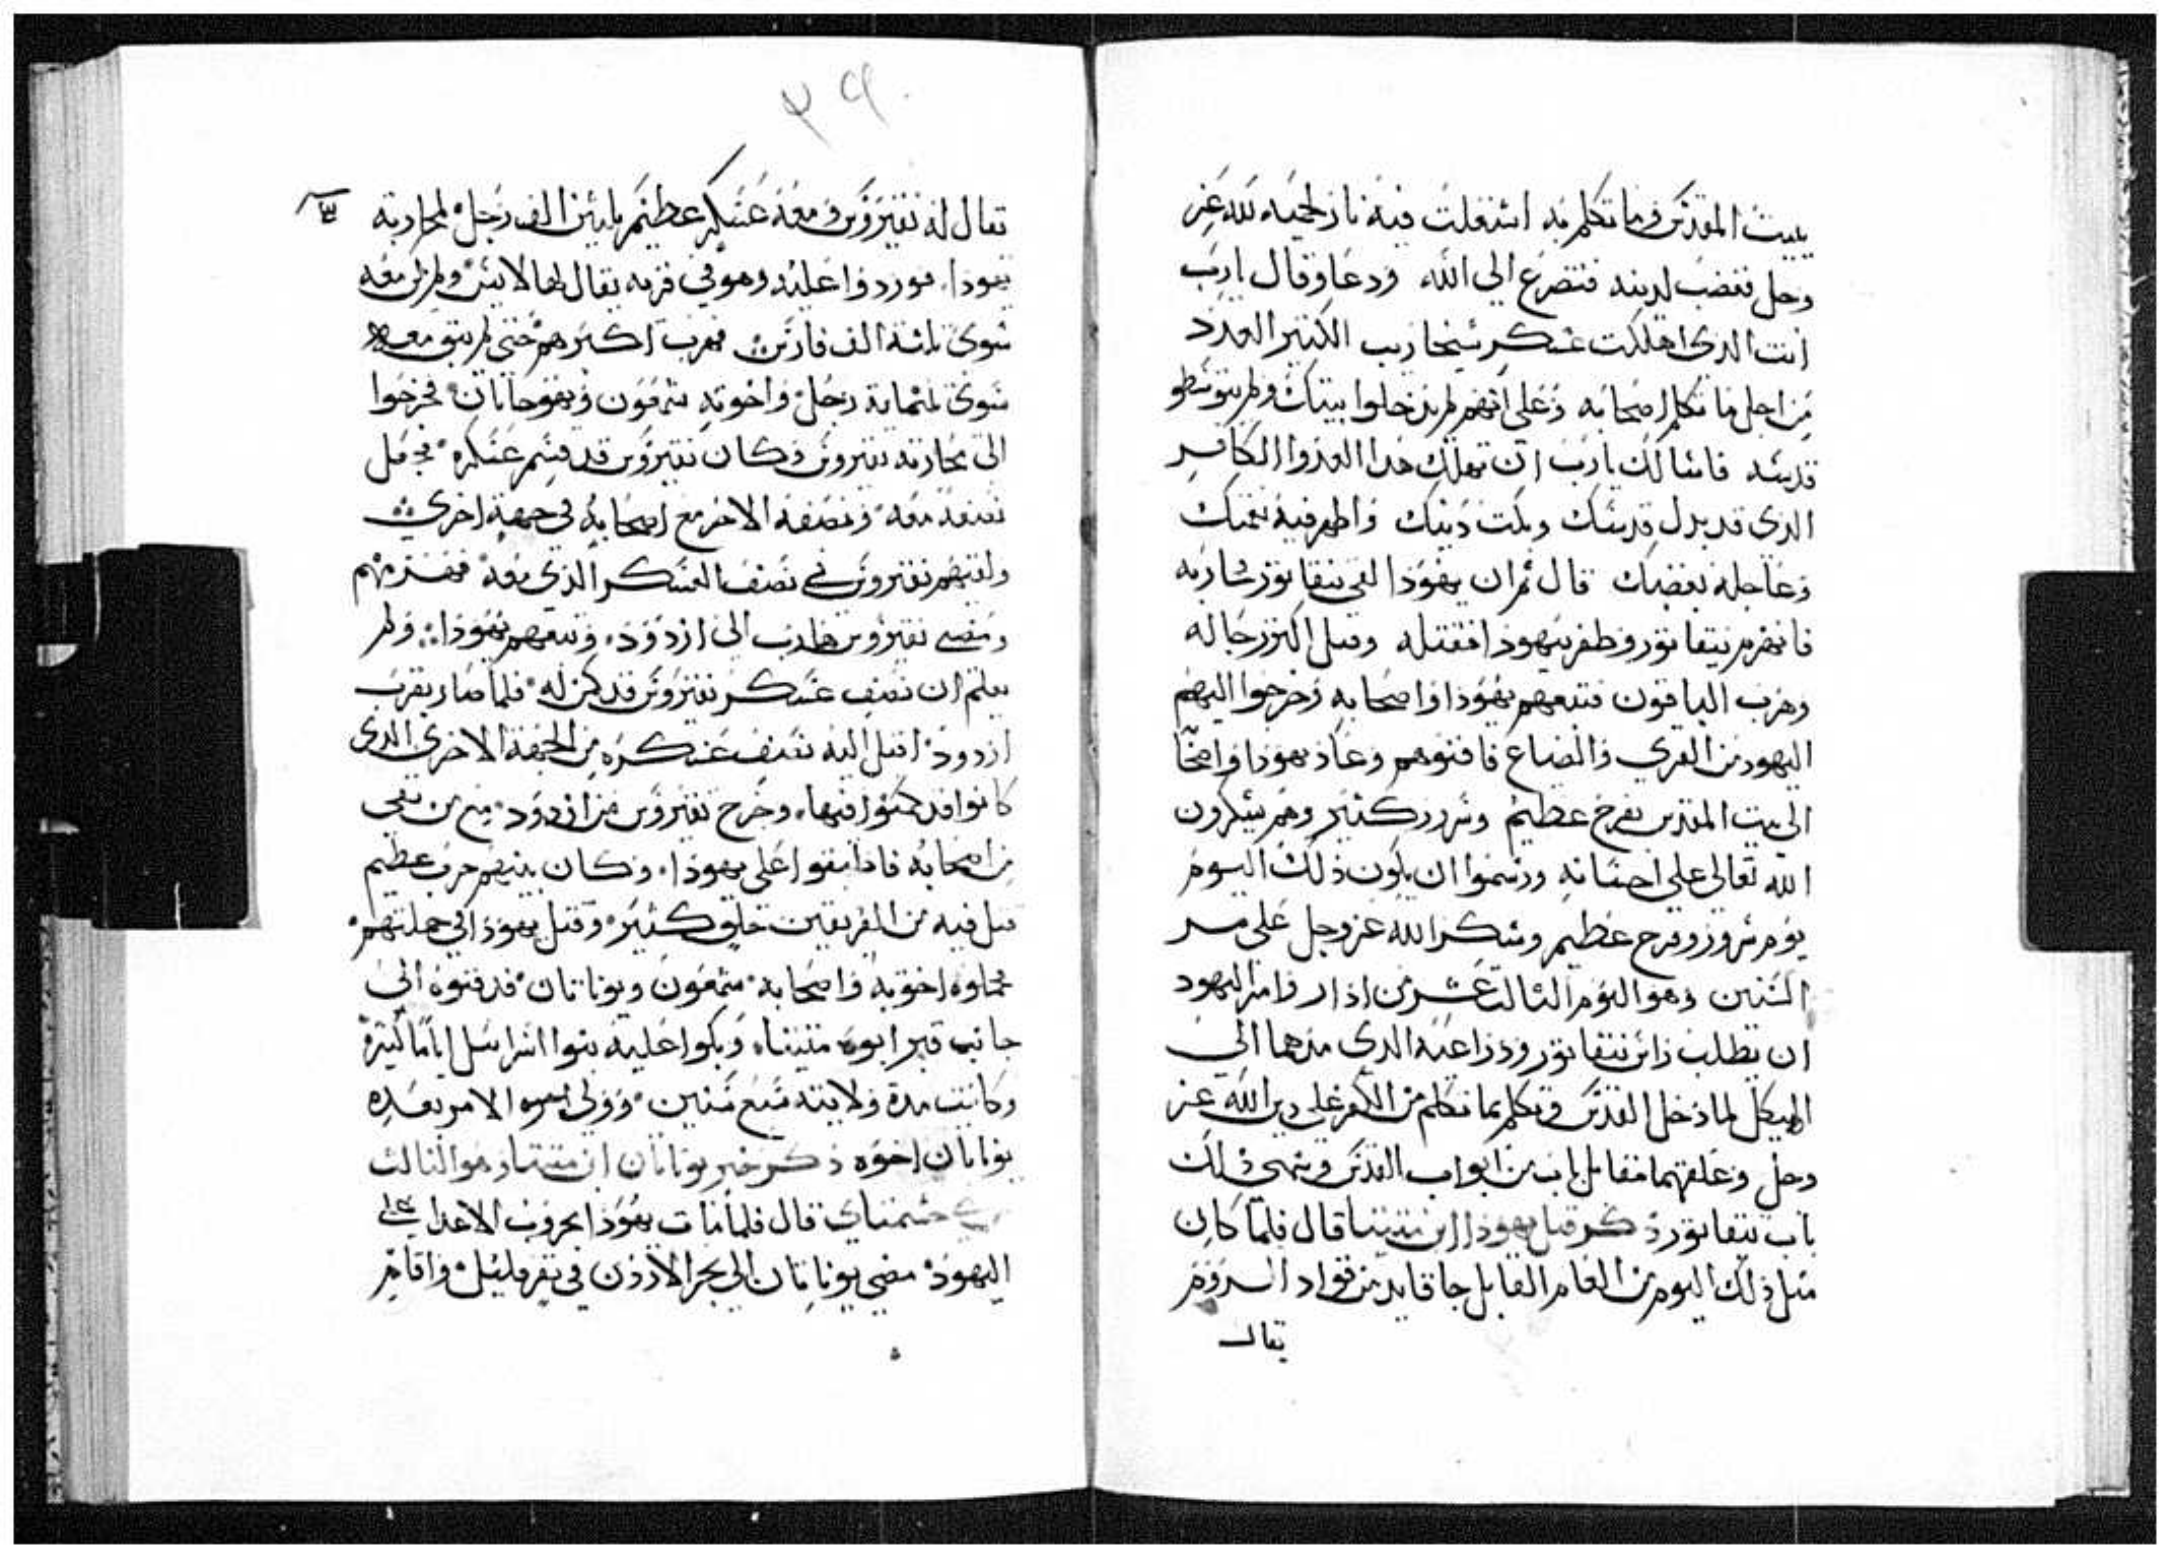 ببيت المقدس وما تكلم به اشتعلت فيه نار لحميه لله عز
وجل فغضب لدينه فتضرع الي الله ودعا وقال يارب
انت الذي اهلكت عسكر سنحاريب الكتير العدد
من اجل ما تكلم اصحابه وعلى انهم لم يدخلوا بيتك ولم يتوسطو
قدسه فاسالك يارب ان تهلك هدا العدوا الكافر
الذي قد بدل قدسك وبكت دينك واظهر فيه نقمتك
وعاجله بغضبك قال ثم ان يهودا لقي نيقانور شاربه
فانهزم نيقانور وظفر يهودا فقتله وقتل اكثر رجاله
وهرب الباقون فتبعهم يهودا واصحابه وخرجوا اليهم
اليهود من القري والضياع فافنوهم وعاد يهودا واصحا
الى بيت المقدس بفرح عظيم وسرور كثير وهم يشكرون
الله تعالى على احسانه ورسموا ان يكون ذلك اليوم
يوم سرور وفرح عظيم وشكر الله عز وجل على مر
السنين وهو اليوم الثالت عشر من اذار وامر اليهود
ان تطلب راس نيقانور وذراعيه الذي مدهما الي
الهيكل لما دخل القدس وتكلم بما تكلم من الكفر على دين الله عز
وجل وعلقهما مقابل باب من ابواب القدس وسمي ذلك
باب نيقانور ذكر قتل يهودا ابن متيتيا قال فلما كان
مثل ذلك اليوم من العام القابل جا قايد من قواد الروم
يقال
٣٩
يقال له نقيروس ومعه عسكر عظيم ثلثين الف رجل لمحاربة
يهودا. فوردوا عليه وهو في قريه يقال لها لايش ولم يكن معه
سوى ثلثة الف فارس فهرب اكثرهم حتى لم يبق معه
سوى ثمنماية رجل واخوته شمعون ويهوحانان فخرجوا
الى محاربة نقيروس وكان نقيروس قد قسم عسكره فجعل
نصفه معه ونصفه الاخر مع اصحابه في جهة اخري
ولقيهم نقيروس في نصف العسكر الذي معه فهزمهم
ومضي نقيروس هارب الى ازدود وتبعهم يهودا ولم
يعلم ان نصف عسكر نقيروس قد كمن له فلما صار بقرب
ازدود اقبل اليه نصف عسكره من الجهة الاخرى الذي
كانوا قد كمنوا فيها. وخرج نقيروس من ازدود مع من بقي
من اصحابه فاطبقوا على يهودا. وكان بينهم حرب عظيم
قتل فيه من الفريقين خلق كثير وقتل يهودا في جملتهم
فحملوه اخوته واصحابه شمعون ويوناتان فدفنوه الي
جانب قبر ابوه متيتيا. وبكوا عليه بنوا اسراييل اياما كثيرة
وكانت مدة ولايته سبع سنين وولي الامر بعده
يوناتان اخوه ذكر خبر يوناتان ابن متيتيا وهو الثالث
حشمناي قال فلما مات يهودا بحروب الاعدا على
اليهود مضى يوناتان الى بحر الاردن في نفر قليل واقام